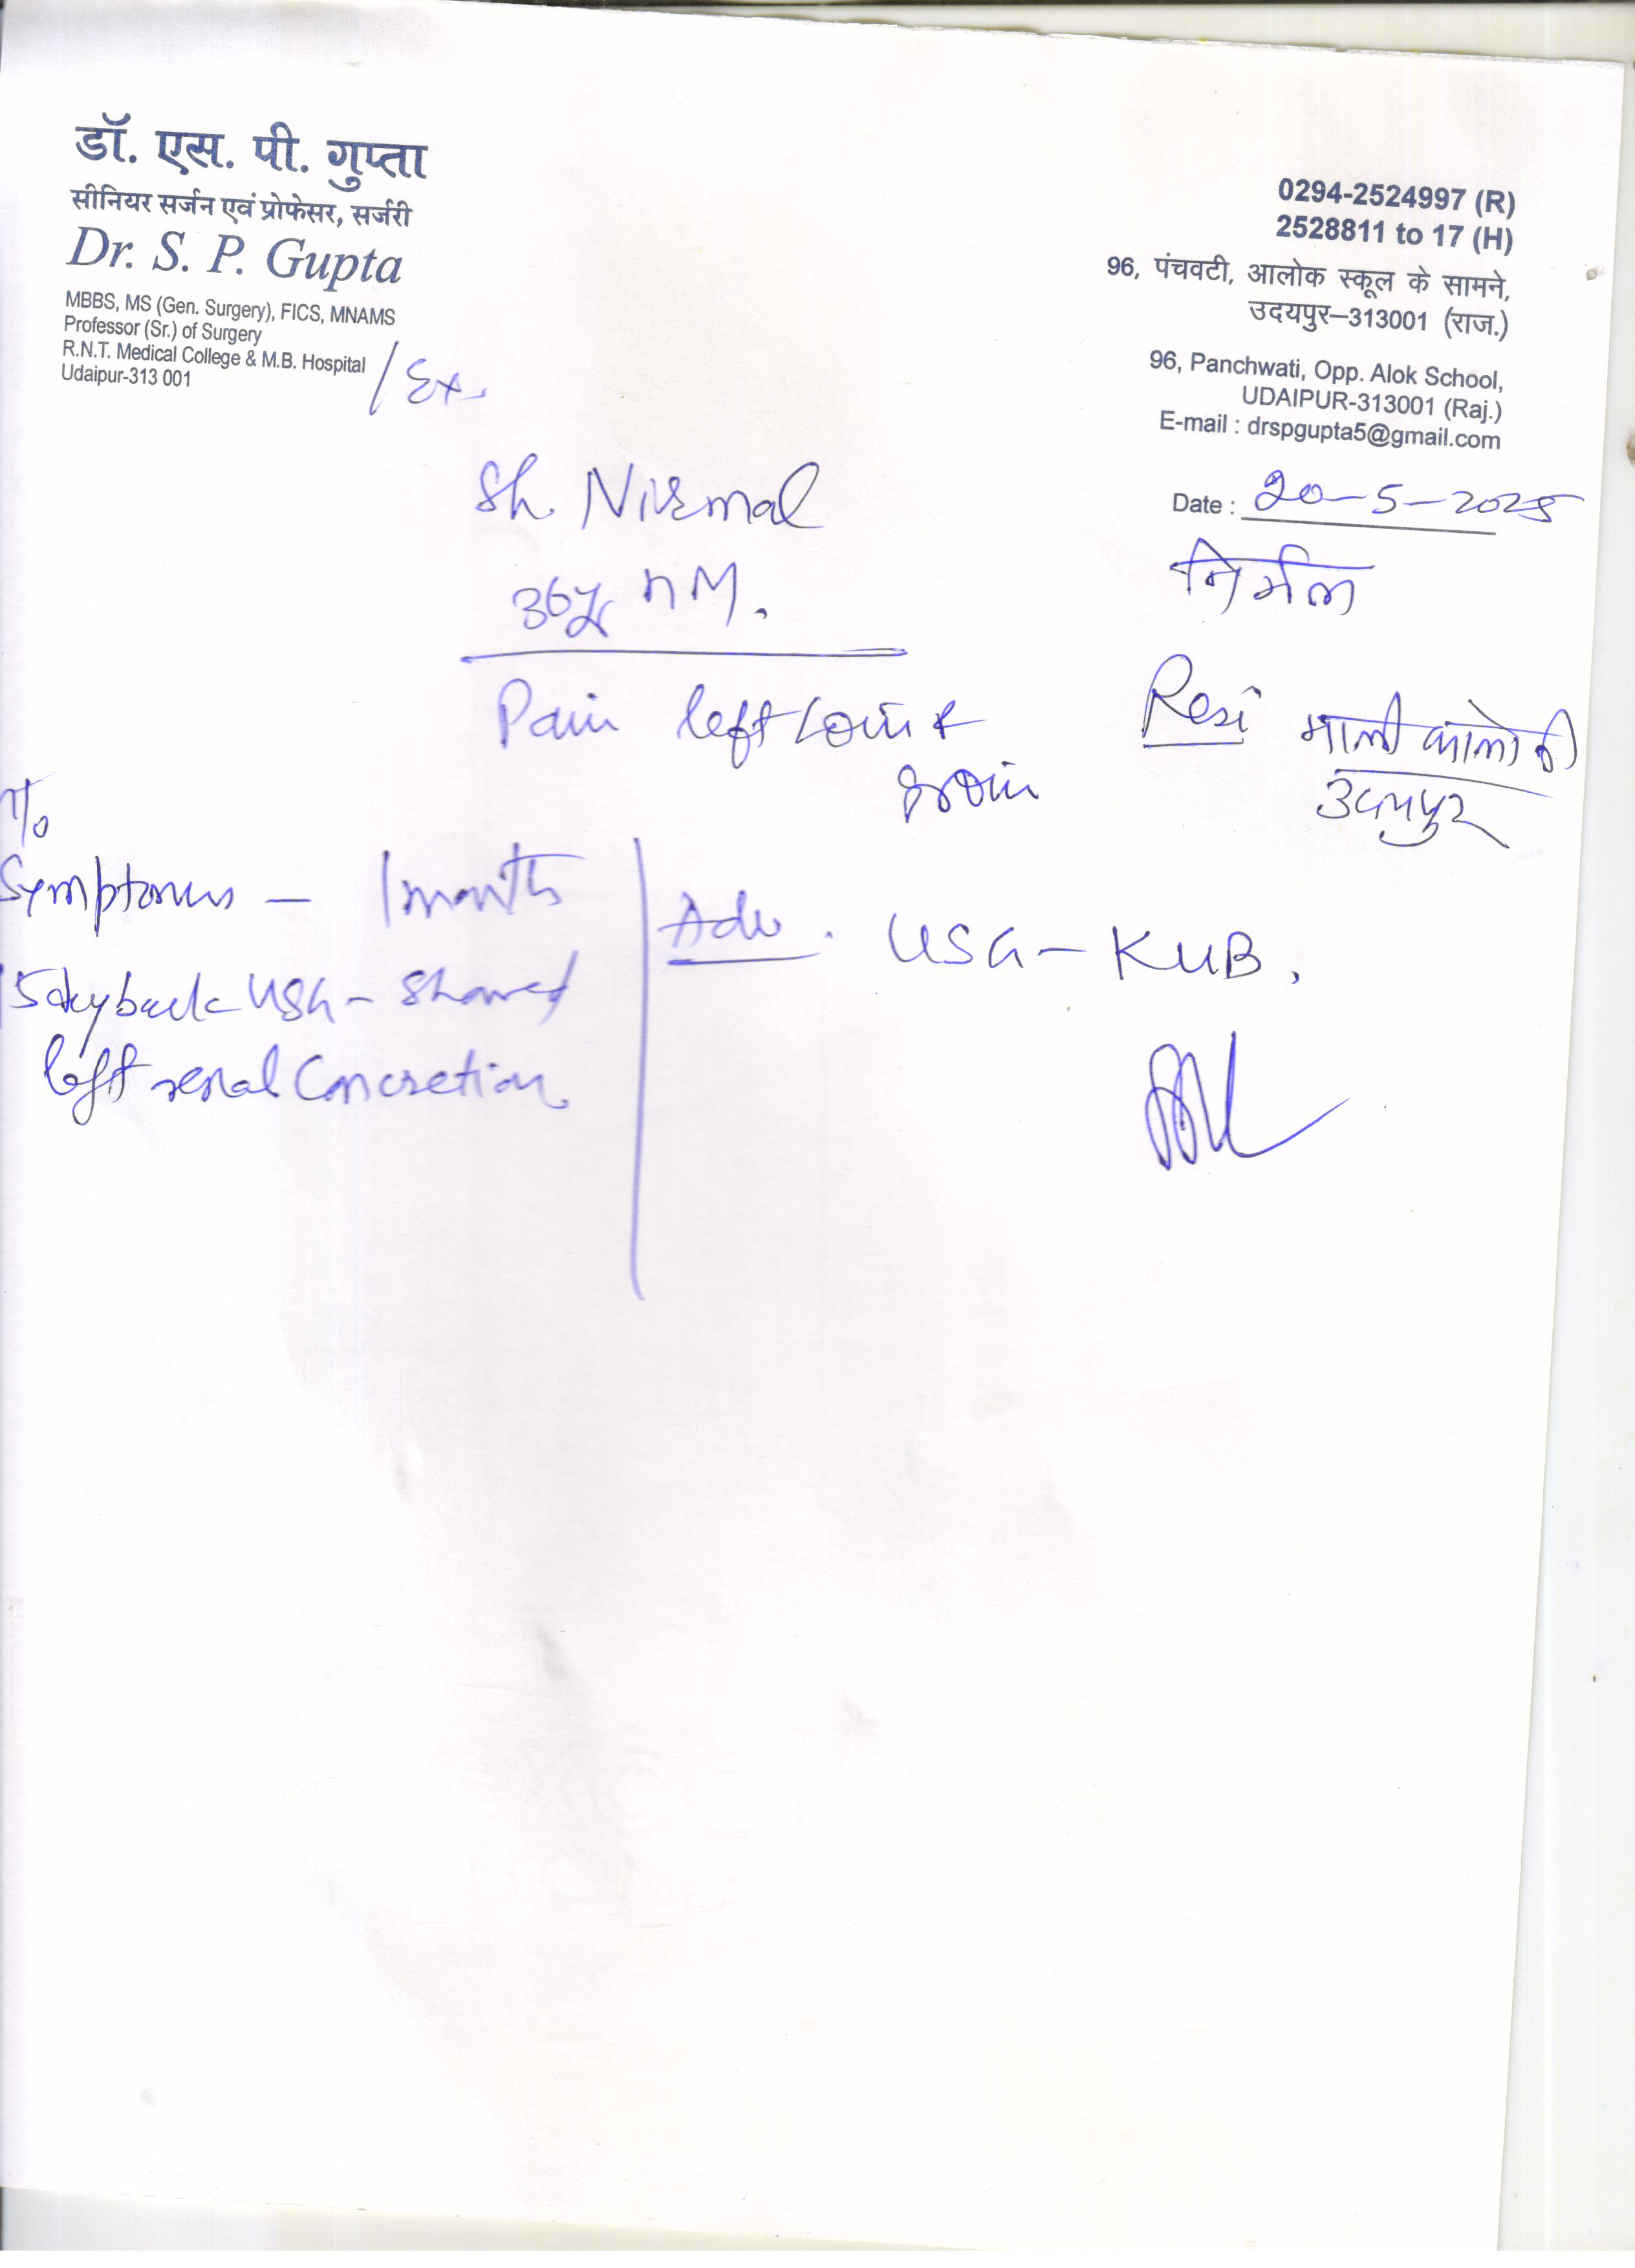 डॉ. एस. पी. गुप्ता
सीनियर सर्जन एवं प्रोफेसर, सर्जरी
Dr. S. P. Gupta
MBBS, MS (Gen. Surgery), FICS, MNAMS
Professor (Sr.) of Surgery
R.N.T. Medical College & M.B. Hospital
Udaipur-313 001
/ Ex.
0294-2524997 (R)
2528811 to 17 (H)
96, पंचवटी, आलोक स्कूल के सामने,
उदयपुर–313001 (राज.)
96, Panchwati, Opp. Alok School,
UDAIPUR-313001 (Raj.)
E-mail : drspgupta5@gmail.com
Date : 20-5-2025
Sh. Nirmal
निर्मल
36y M.
Pain left Loin &
groin
Resi माली कालोनी
उदयपुर
Symptoms – 1 month
back USG – Showed
left renal Concretion
Adv. USG – KUB.